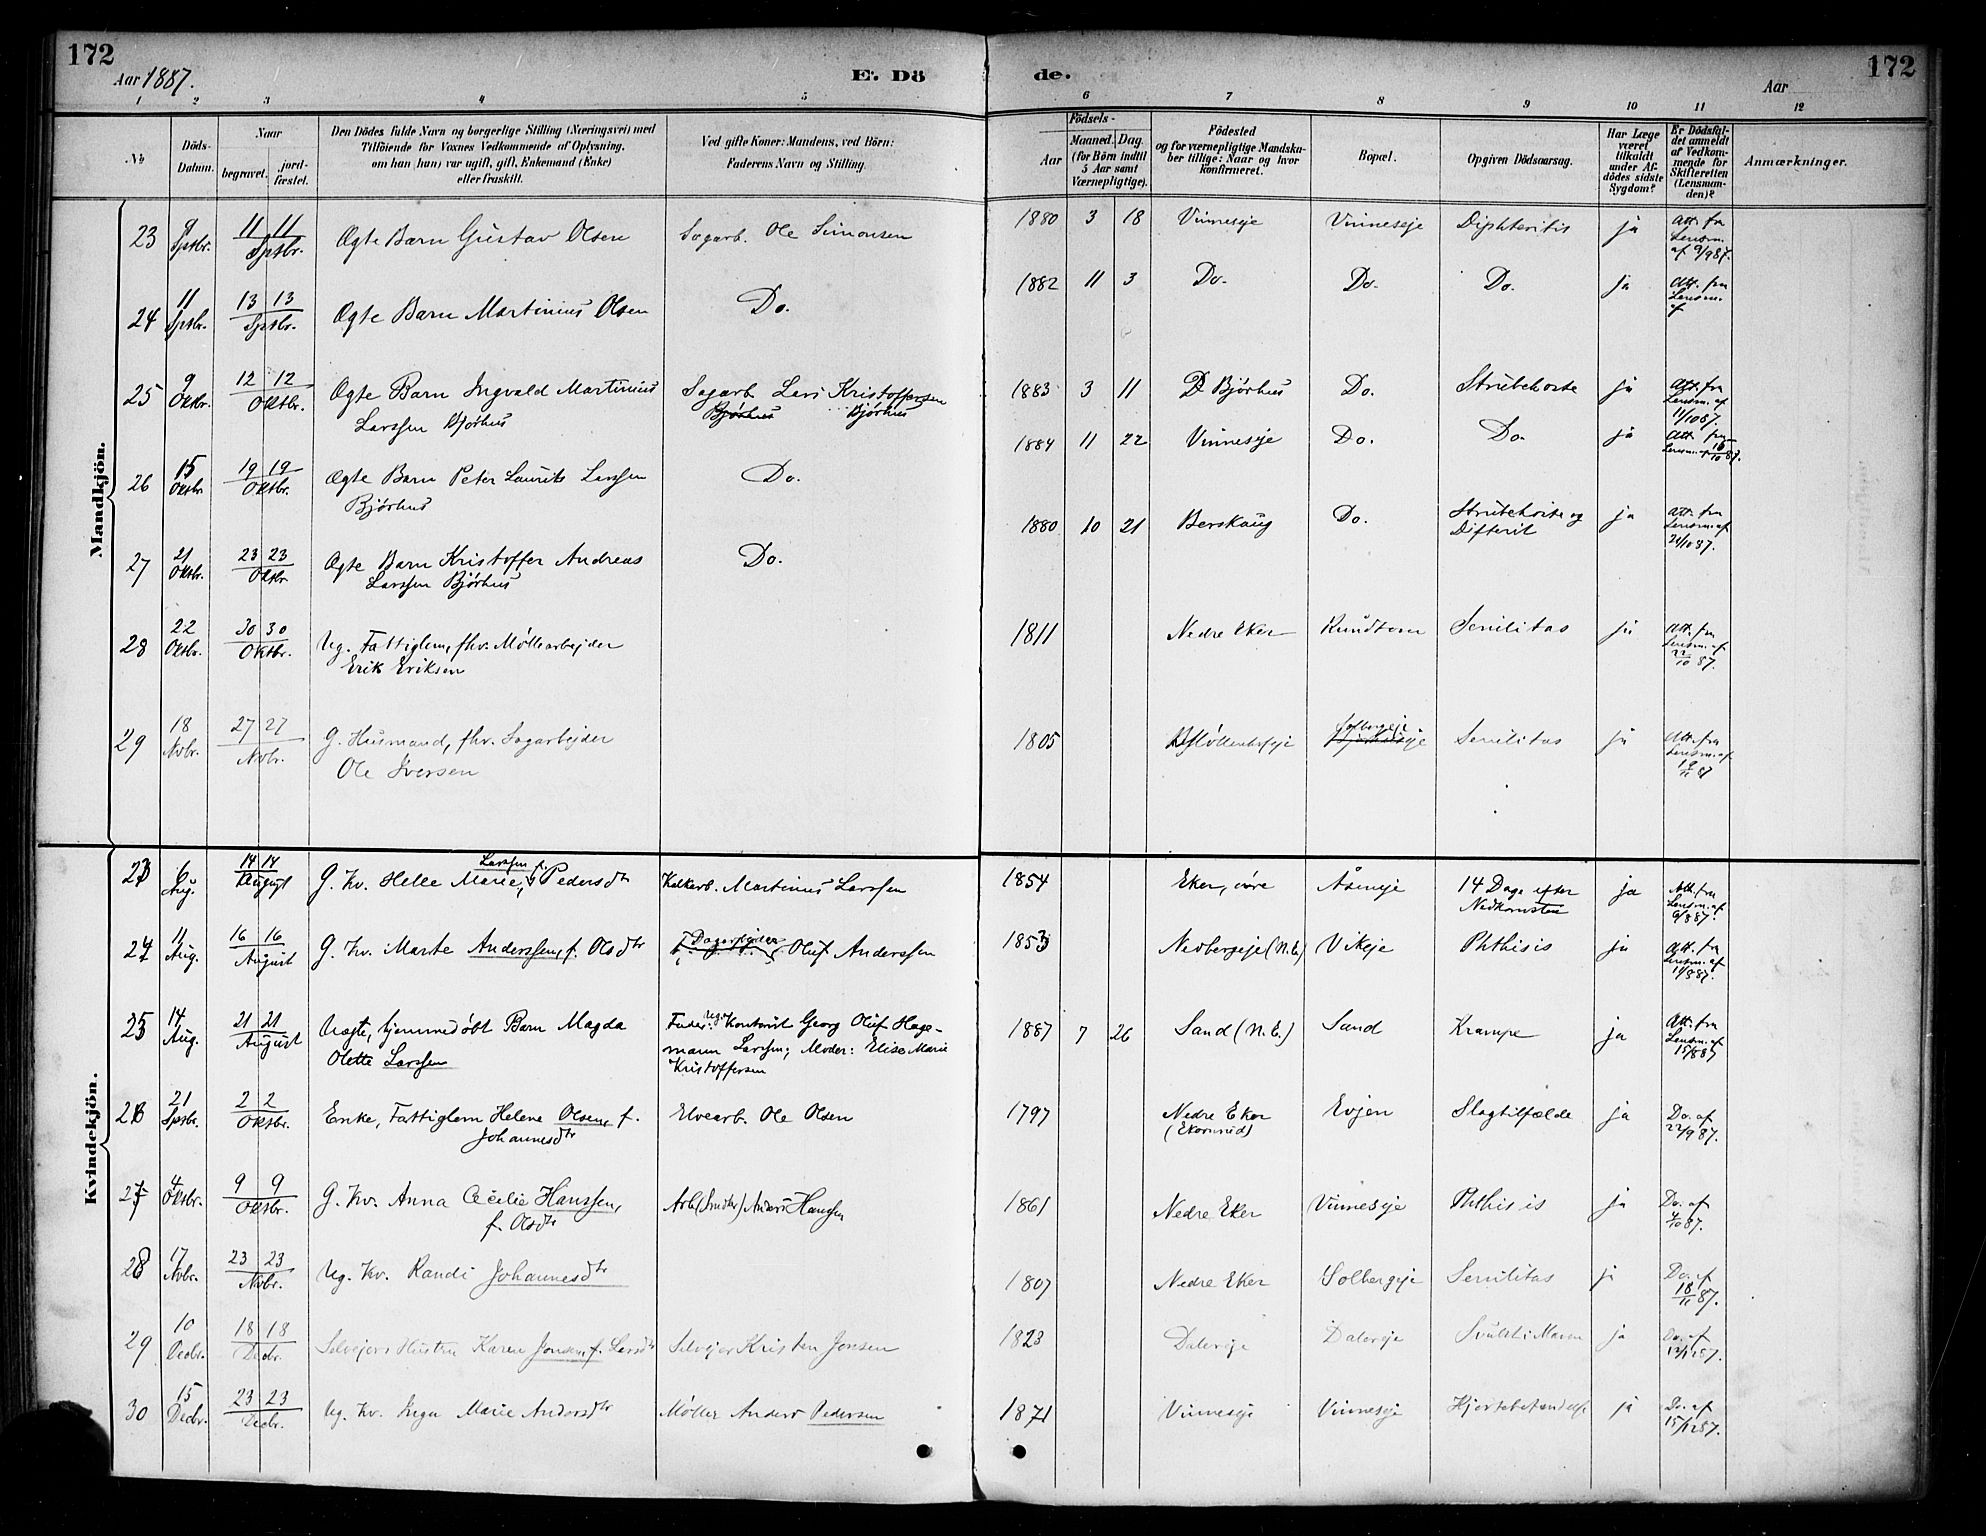 172
Aar 1887.
E. Dö
de.
Aar
172
1 2 3 4 5 6 7 8 9 10 11 12
No
Döds-
Datum.
Naar
begravet.
jord-
fæstet.
Den Dödes fulde Navn og borgerlige Stilling (Næringsvei) med
Tilföiende for Voxnes Vedkommende af Oplysning,
om han (hun) var ugift, gift, Enkemand (Enke)
eller fraskilt.
Ved gifte Koner: Mandens, ved Börn:
Faderens Navn og Stilling.
Födsels-
Aar
Maaned. Dag.
(for Börn indtil
5 Aar samt
Værnepligtige).
Födested
og for værnepligtige Mandska-
ber tillige: Naar og hvor
konfirmeret.
Bopæl.
Opgiven Dödsaarsag.
Har Læge
været
tilkaldt
under Af-
dödes sidste
Sygdom?
Er Dödsfal-
det anmeldt
af Vedkom-
mende for
Skifteretten
(Lensman-
den)?
Anmærkninger.
Mandkjön.
23 9 Sptbr. 11 11 Sptbr. Ægte Barn Gustav Olsen Sagarb. Ole Simonsen 1880 3 18 Vinneseje Vinneseje Diphteritis ja Att. fra
Lensm.
af 9/9 87.
24 11 Sptbr. 13 13 Sptbr. Ægte Barn Martinius Olsen Do. 1882 11 3 Do. Do. Do. ja Att. fra
Lensm.
af
25 9 Oktbr. 12 12 Oktbr. Ægte Barn Ingvald Martinius Sagarb. Lars Kristoffersen 1883 3 11 Bjørhus Do. Strubehoste ja Att. fra
Larssen Bjørhus Bjørhus Bjørhus Lensm. af
11/10 87.
26 15 Oktbr. 19 19 Oktbr. Ægte Barn Peter Laurits Larssen Do. 1884 11 22 Vinneseje Do. Do. ja Att. fra
Bjørhus Lensm. af 16/10 87.
27 21 Oktbr. 23 23 Oktbr. Ægte Barn Kristoffer Andreas Do. 1880 10 21 Berskaug Do. Strubehoste og ja Att. fra
Larssen Bjørhus Difterit Lensm. af
24/10 87.
28 22 Oktbr. 30 30 Oktbr. Ug. Fattiglem, fhv. Møllearbejder 1811 Nedre Eker Senilitas ja Att. fra
Erik Eriksen Lensm. af
22/10 87.
29 18 Nvbr. 27 27 Nvbr. G. Husmand, fhv. Sagarbejder 1805 Solbergeje Senilitas ja Att. fra
Ole Iversen Lensm. af
19/11 87
Kvindekjön.
23 6 Aug. 14 14 August G. Kv. Helle Marie Larssen f. Pedersdtr Kalkarb. Martinus Larssen 1854 Eker, øvre Åseneje 14 Dage efter ja Att. fra
Nedkomsten Lensm. af
9/8 87.
24 11 Aug. 16 16 August G. Kv. Marte Anderssen, f. Olsdtr Dagarbejder Oluf Anderssen 1853 Nedbergeje (N.E.) Vikeje Phthisis ja Att. fra
Lensm. af
11/8 87.
25 14 Aug. 21 21 August Uægte, hjemmedøbt Barn Magda Fader: Ug. Kontorist Georg Oluf Hage- 1887 7 26 Sand (N.E.) Sand Krampe ja Att. fra
Olette Larssen mann Larssen; Moder: Elise Marie Lensm. af
Kristoffersen 15/8 87
26 21 Sptbr. 2 2 Oktbr. Enke, Fattiglem Helene Olsen, f. Elvearb. Ole Olsen 1797 Nedre Eker Evjen Slagtilfælde ja Do. af
Johannesdtr (Ekornrud) 22/9 87.
27 4 Oktbr. 9 9 Oktbr. G. Kv. Anna Cecilie Hanssen, Arb. (Snedker) Anders Hanssen 1861 Nedre Eker Vinneseje Phthisis ja Do. af
f. Olsdtr 4/10 87.
28 17 Nvbr. 23 23 Nvbr. Ug. Kv. Randi Johannesdtr 1807 Nedre Eker Solbergeje Senilitas ja Do. af
18/11 87.
29 10 Decbr. 18 18 Decbr. Selvejers Hustru Karen Jonsen, f. Larsdtr Selvejer Kristen Jonsen 1823 Dalereje Dalereje Svulst i Maven ja Do. af
13/12 87.
30 15 Decbr. 23 23 Decbr. Ug. Kv. Inga Marie Andersdtr Møller Anders Pedersen 1871 Vinneseje Vinneseje Hjertebetændelse ja Do. af
15/12 87.